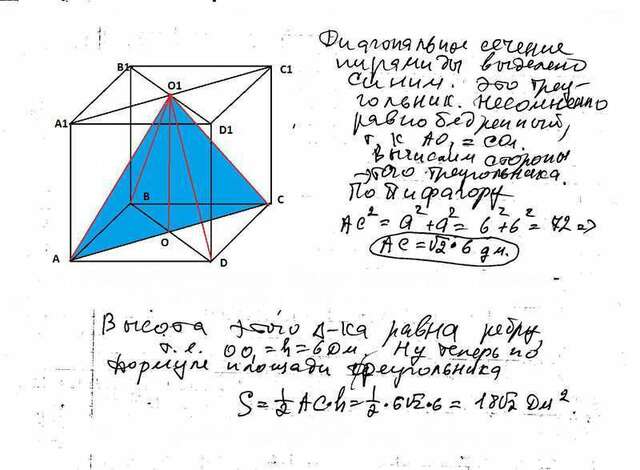 B1
C1
O1
A1
D1
B
C
A
O
D
Диагональное сечение
пирамиды выделено
синим. Это треу-
гольник. Несомненно
равнобедренный,
т к AO₁ = CO₁.
Вычислим стороны
этого треугольника.
По Пифагору
AC² = a² + a² = 6² + 6² = 72 ⇒
AC = √2 · 6 дм.
Высота этого Δ-ка равна ребру,
т.е. OO₁ = h = 6 Дм. Ну теперь по
формуле площади треугольника
S = ½ AC · h = ½ · 6√2 · 6 = 18√2 Дм².